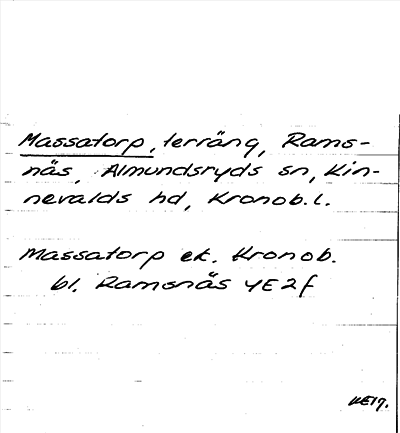 Massatorp, terräng, Rams-
näs, Almundsryds sn, Kin-
nevalds hd, Kronob. l.
Massatorp ek. Kronob.
bl. Ramsnäs 4E2f